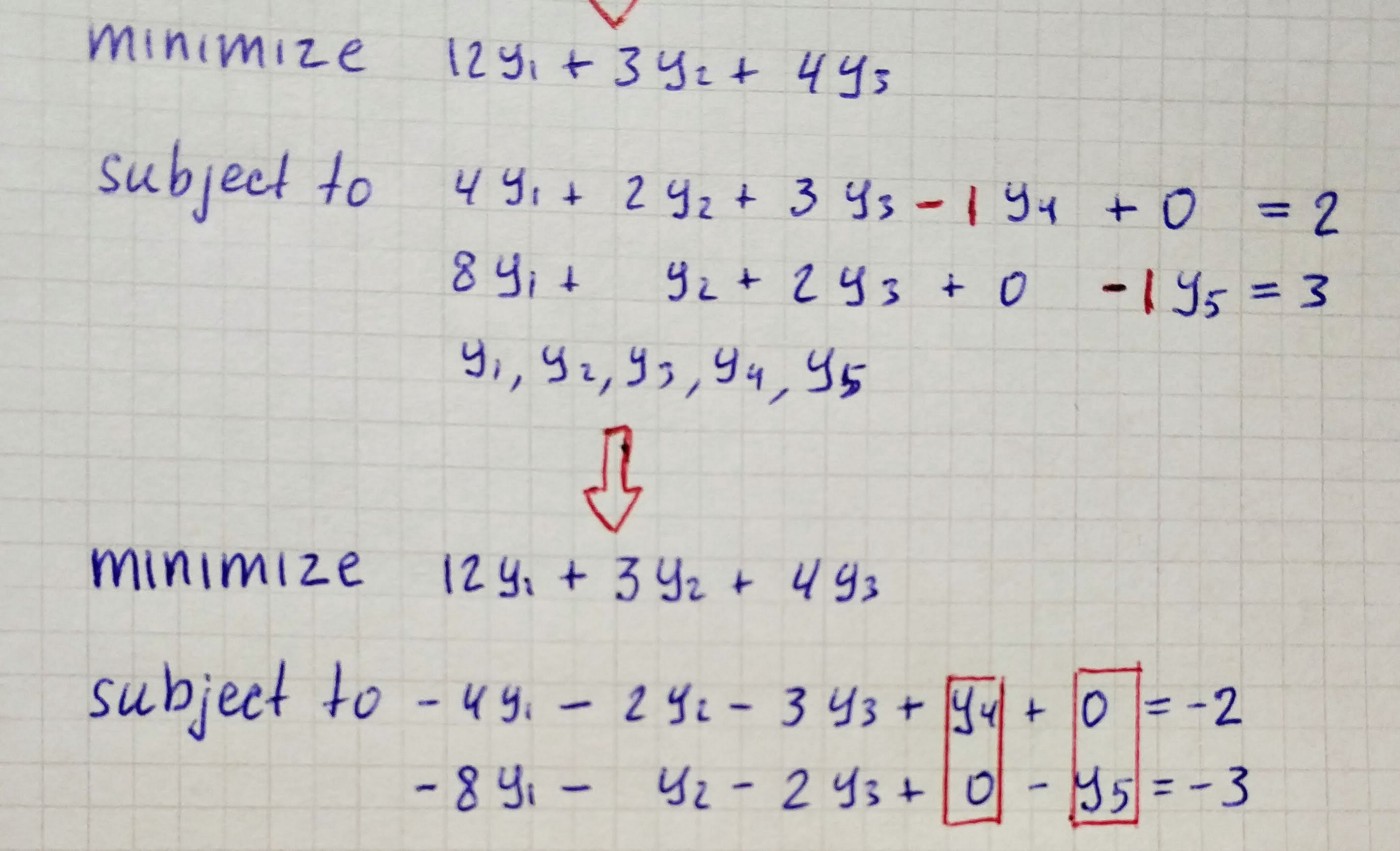 minimize 12y₁ + 3y₂ + 4y₃
subject to 4y₁ + 2y₂ + 3y₃ -1y₄ + 0 = 2
8y₁ + y₂ + 2y₃ + 0 -1y₅ = 3
y₁, y₂, y₃, y₄, y₅
minimize 12y₁ + 3y₂ + 4y₃
subject to -4y₁ - 2y₂ - 3y₃ + y₄ + 0 = -2
-8y₁ - y₂ - 2y₃ + 0 - y₅ = -3